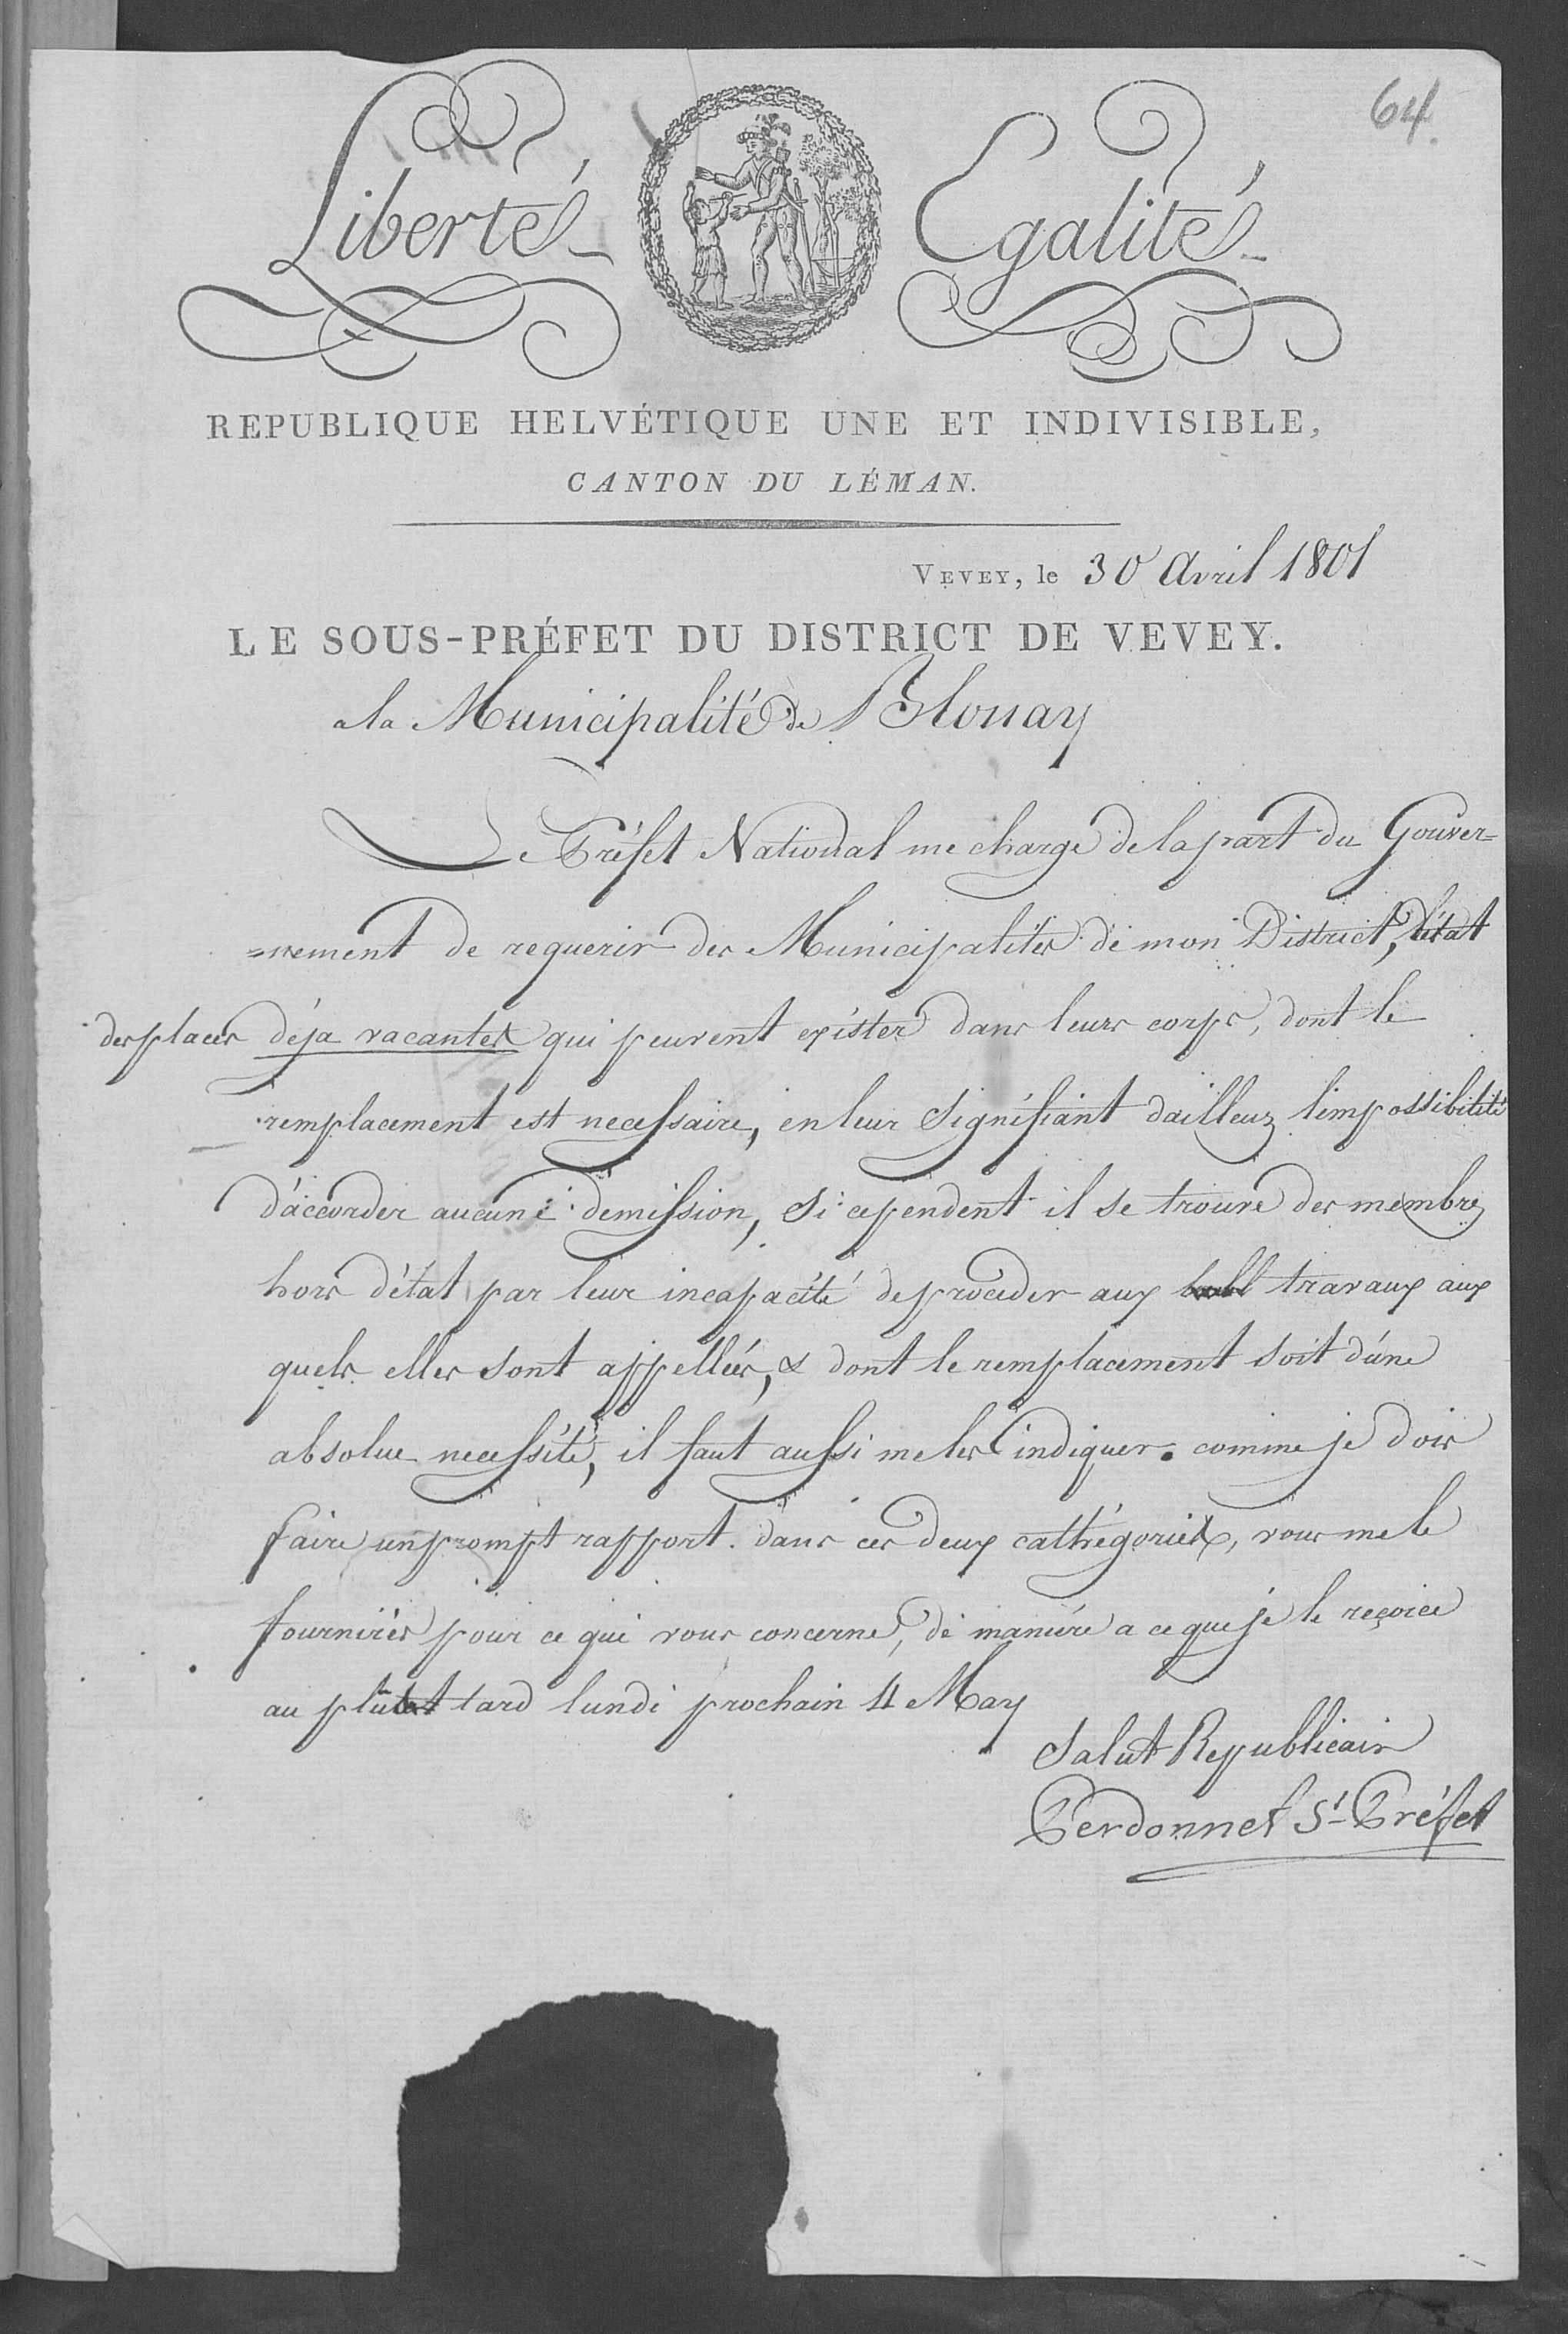 64.
Liberté Egalité
REPUBLIQUE HELVÉTIQUE UNE ET INDIVISIBLE,
CANTON DU LÉMAN.
VEVEY, le 30 Avril 1801
LE SOUS-PRÉFET DU DISTRICT DE VEVEY.
a la Municipalité de Blonay
Le Préfet National me charge de la part du Gouver=
=nement de requerir des Municipalités de mon District, l'état
des places déja vacantes qui peuvent exister dans leurs corps, dont le
remplacement est necessaire, en leur signifiant dailleurs limpossibilité
d'accorder aucune demission, Si cependent il se trouve des membres
hors détat par leur incapacité de proceder aux travaux aux
quels elles sont appellées, & dont le remplacement soit d'une
absolue necessité, il faut aussi me les indiquer. comme je dois
faire un prompt rapport. dans ces deux cathégories, vous me le
fournirés pour ce qui vous concerne, de maniére a ce que je le reçoive
au plus tard lundi prochain 4 May
Salut Republicain
Perdonnet St. Préfet